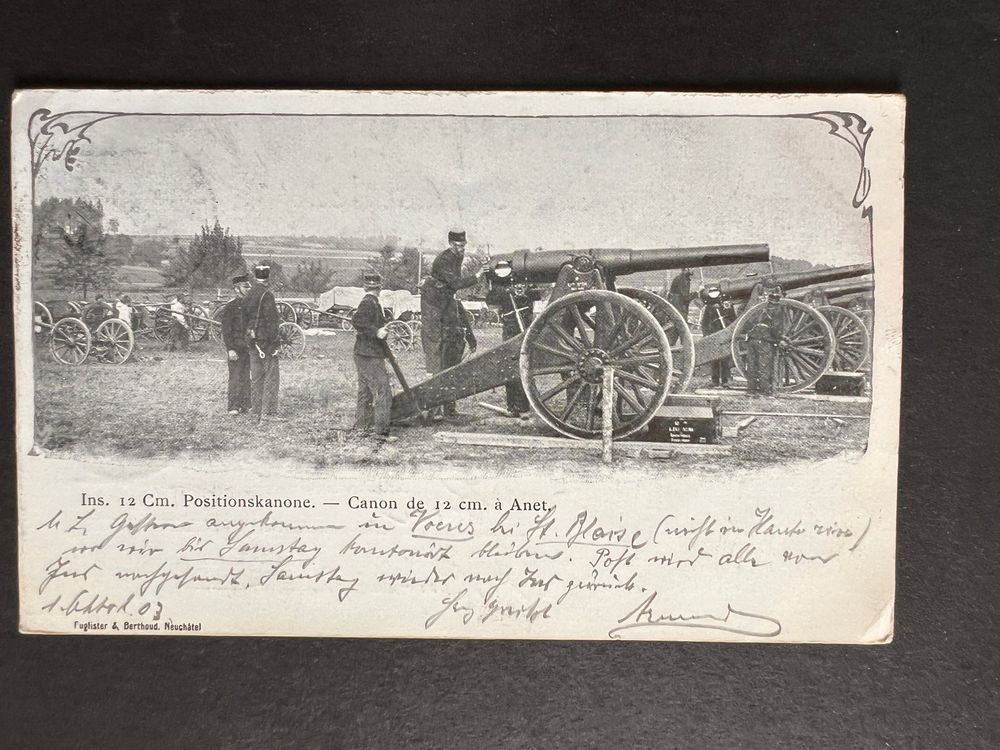 Ins. 12 Cm. Positionskanone. — Canon de 12 cm. à Anet.
M. L. Gestern angekommen in Voens bei St. Blaise (nicht in Hauterive)
wo wir bis Samstag kantoniert bleiben. Post wird alle von
Ins nachgesandt. Samstag wieder nach Ins zurück.
1. Oktob. 03
Fuglister & Berthoud. Neuchâtel